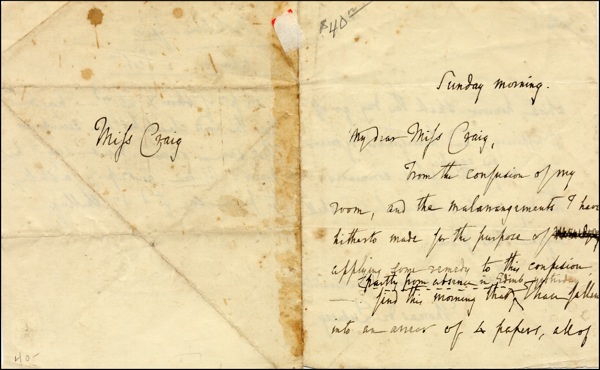 $40.00
Miss Craig
40-
Sunday morning.
My dear Miss Craig,
From the confusion of my
room, and the malarrangements I have
hitherto made for the purpose of
applying some remedy to this confusion,
partly from absence in Edinb. yesterday
find this morning that I have fallen
into an arrear of 4 papers, all of